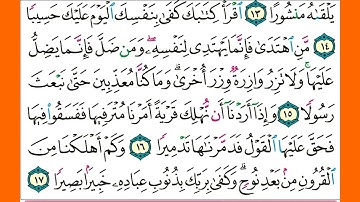 يَلْقَىٰهُ مَنشُورًا ١٣ ٱقْرَأْ كِتَٰبَكَ كَفَىٰ بِنَفْسِكَ ٱلْيَوْمَ عَلَيْكَ حَسِيبًا
١٤ مَّنِ ٱهْتَدَىٰ فَإِنَّمَا يَهْتَدِى لِنَفْسِهِۦ ۖ وَمَن ضَلَّ فَإِنَّمَا يَضِلُّ
عَلَيْهَا ۚ وَلَا تَزِرُ وَازِرَةٌ وِزْرَ أُخْرَىٰ ۗ وَمَا كُنَّا مُعَذِّبِينَ حَتَّىٰ نَبْعَثَ
رَسُولًا ١٥ وَإِذَآ أَرَدْنَآ أَن نُّهْلِكَ قَرْيَةً أَمَرْنَا مُتْرَفِيهَا فَفَسَقُوا۟ فِيهَا
فَحَقَّ عَلَيْهَا ٱلْقَوْلُ فَدَمَّرْنَٰهَا تَدْمِيرًا ١٦ وَكَمْ أَهْلَكْنَا مِنَ
ٱلْقُرُونِ مِنۢ بَعْدِ نُوحٍ ۗ وَكَفَىٰ بِرَبِّكَ بِذُنُوبِ عِبَادِهِۦ خَبِيرًۢا بَصِيرًا ١٧